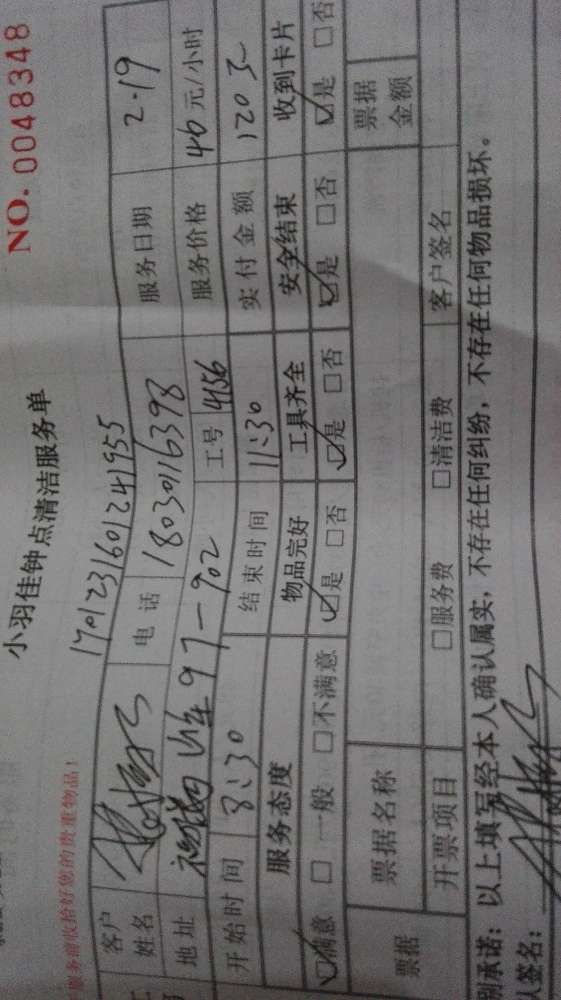 NO. 0048348
小羽佳钟点清洁服务单
服务前收拾好您的贵重物品！
1701231601241955
客户姓名 电话 18030116398 服务日期 2.19
地址 97-902 工号 4156 服务价格 40元/小时
开始时间 8:30 结束时间 11:30 实付金额 120元
服务态度 物品完好 工具齐全 安全结束 收到卡片
☑满意 □一般 □不满意 ☑是 □否 ☑是 □否 ☑是 □否 ☑是 □否
票据 票据名称 票据金额
开票项目 □服务费 □清洁费 客户签名
别承诺：以上填写经本人确认属实，不存在任何纠纷，不存在任何物品损坏。
人签名：